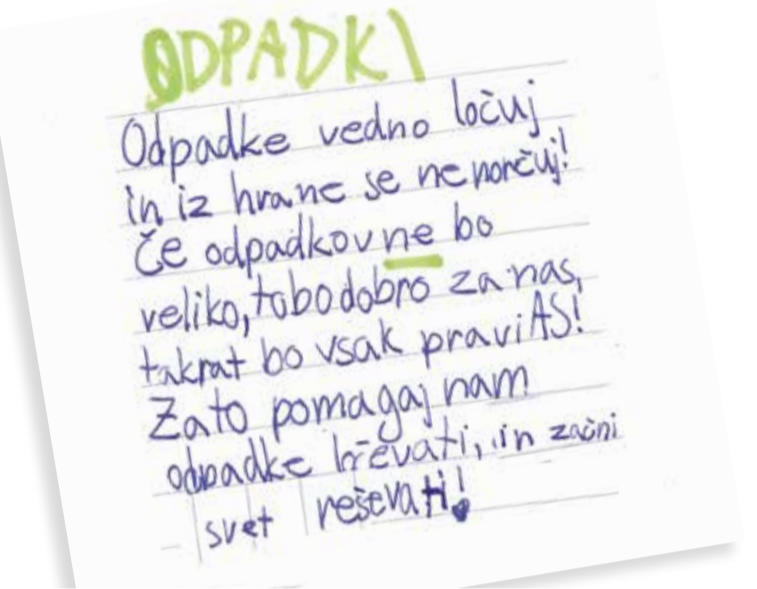 ODPADKI
Odpadke vedno ločuj
in iz hrane se ne norčuj!
Če odpadkov ne bo
veliko, to bo dobro za nas,
takrat bo vsak pravi AS!
Zato pomagaj nam
odpadke in začni
svet reševati!